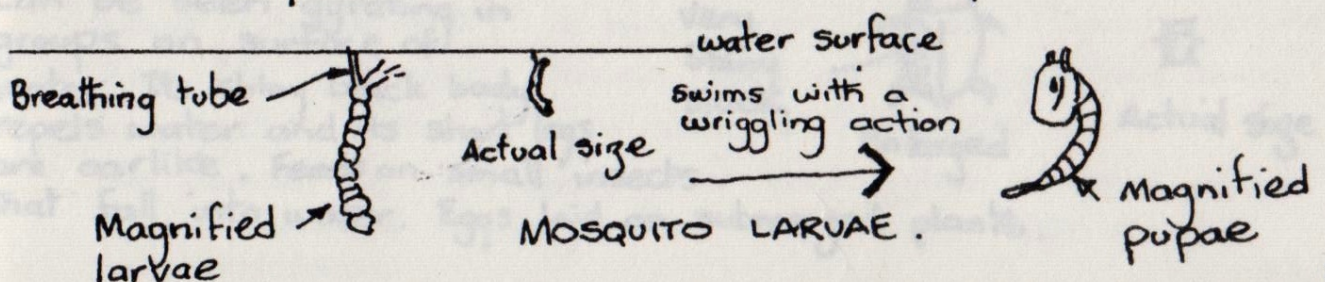 water surface
Breathing tube
Swims with a
wriggling action
Actual size
Magnified
larvae
MOSQUITO LARVAE.
Magnified
pupae